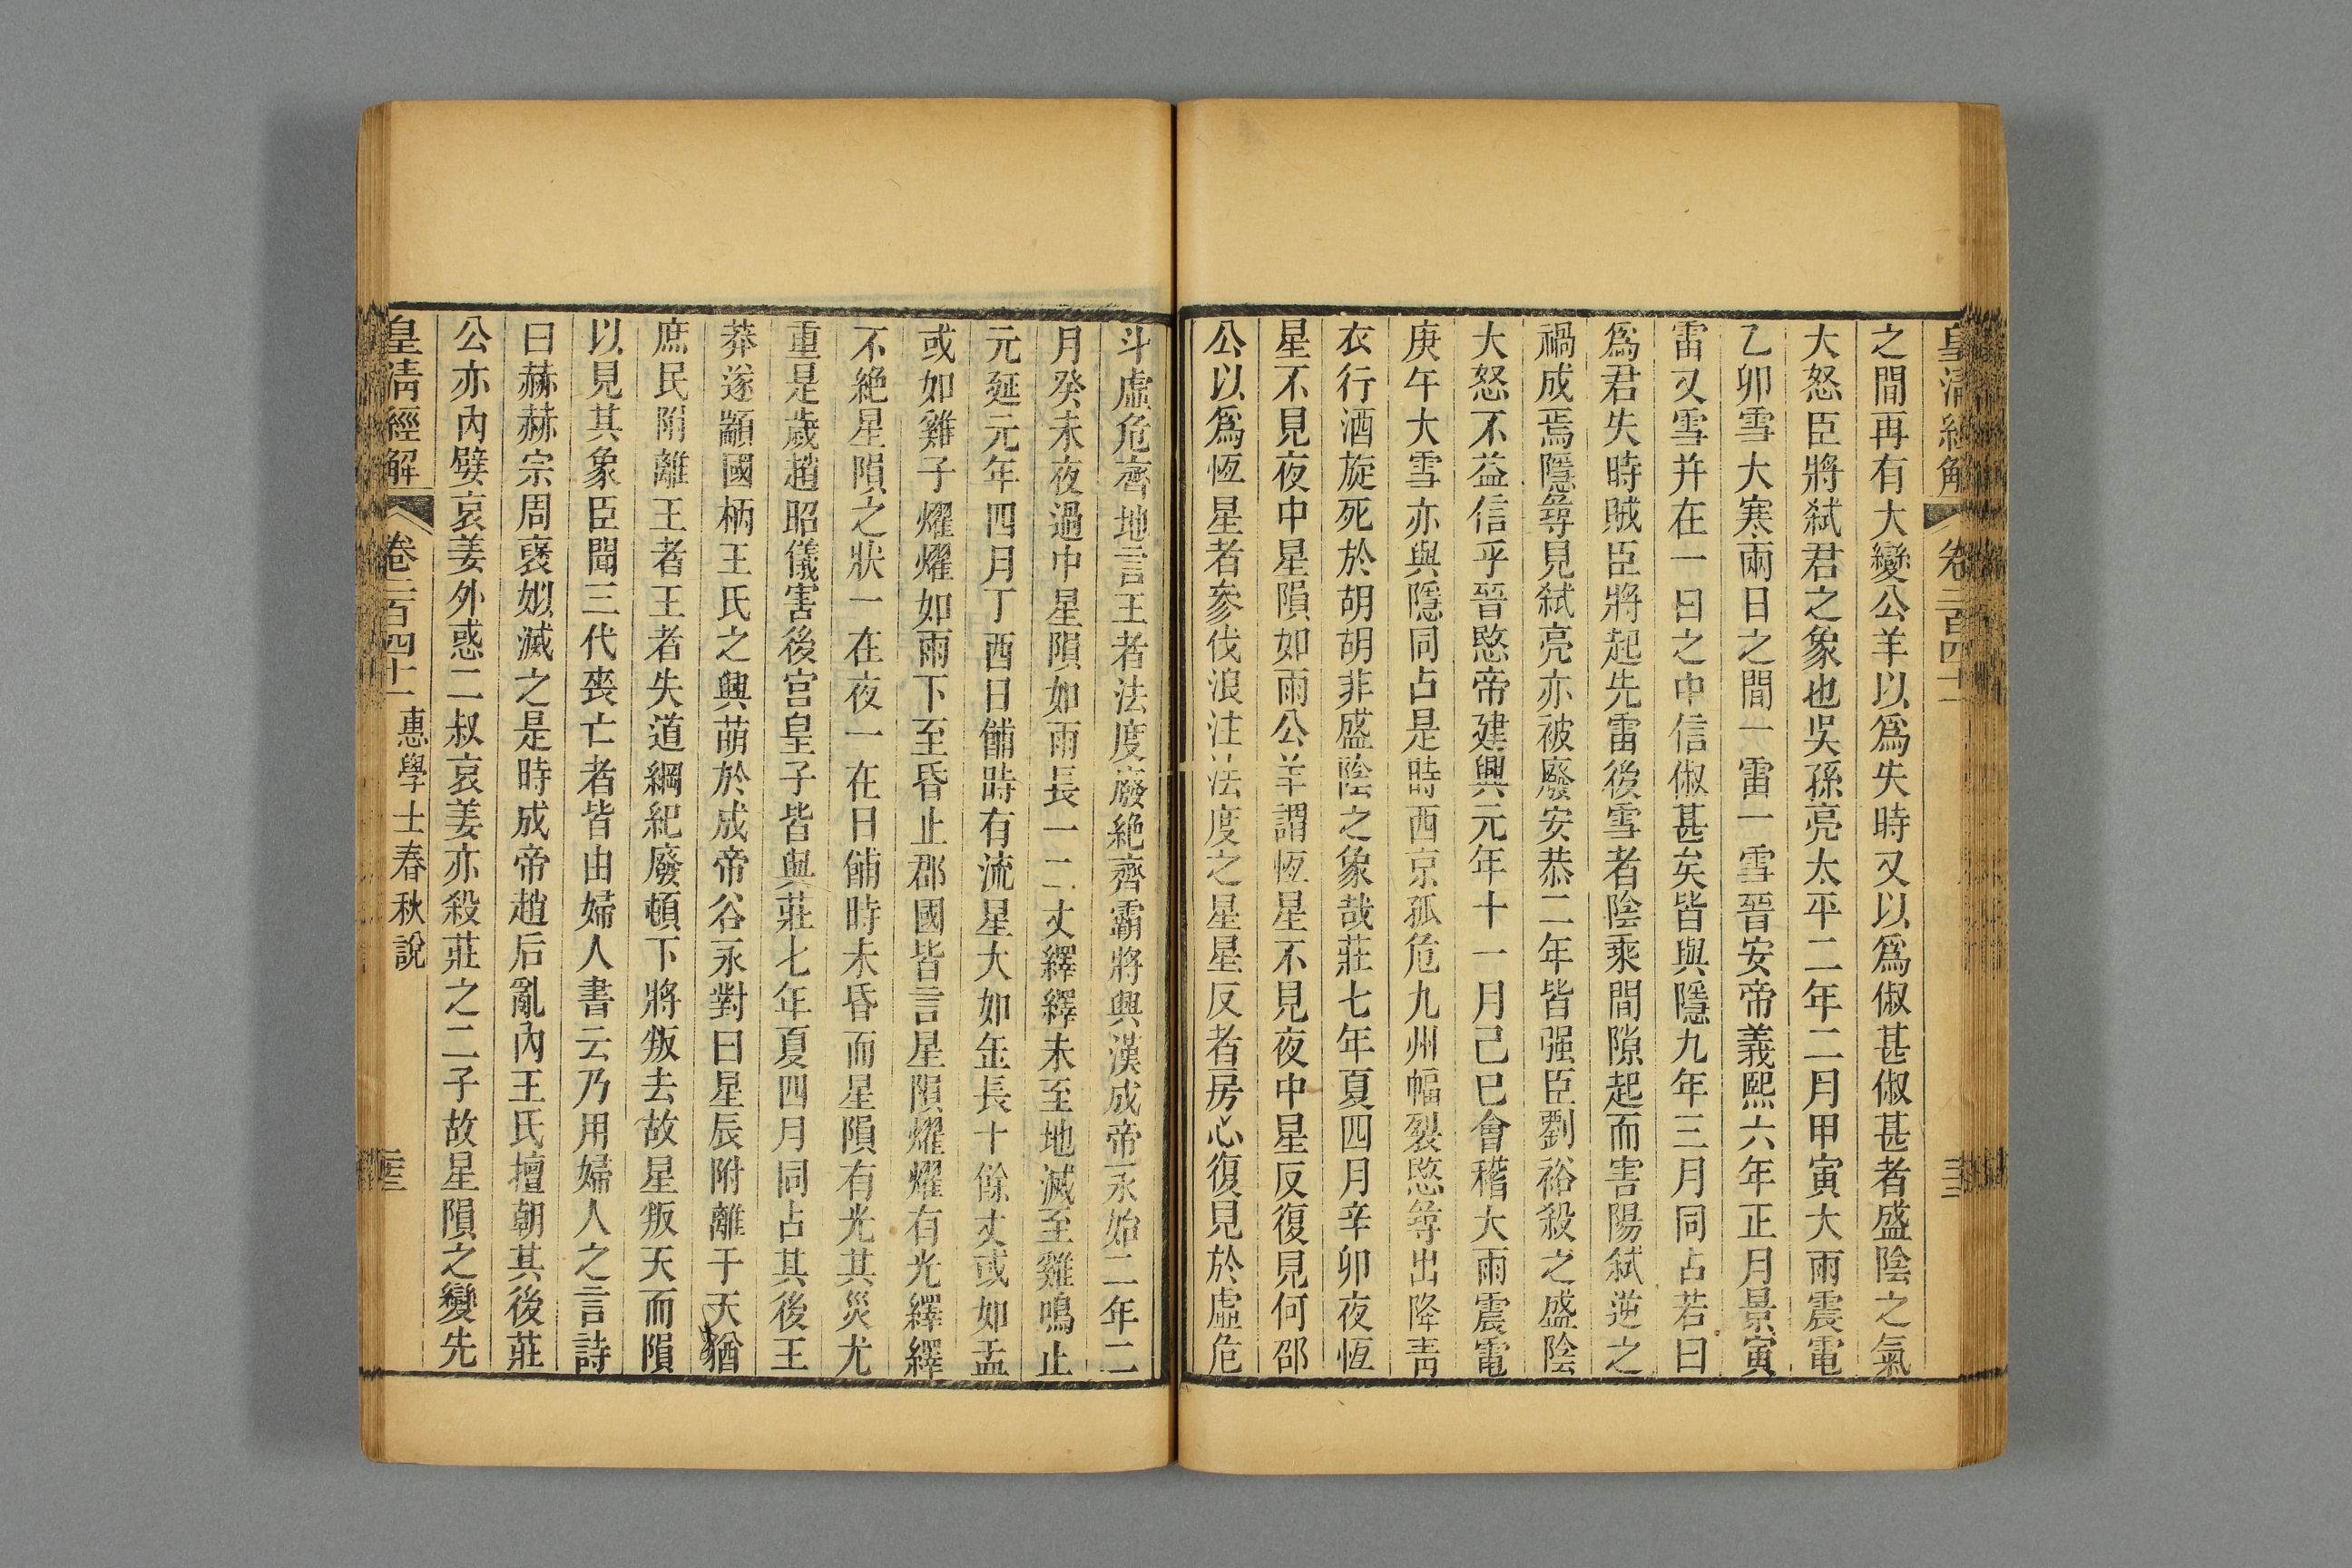 皇清經解 卷二百四十一
之間再有大變公羊以爲失時又以爲俶甚俶甚者盛陰之氣
大怒臣將弑君之象也吳孫亮太平二年二月甲寅大雨震電
乙卯雪大寒兩日之間一雷一雪晉安帝義熙六年正月景寅
雷又雪并在一日之中信俶甚矣皆與隱九年三月同占若曰
爲君失時賊臣將起先雷後雪者陰乘間隙起而害陽弑逆之
禍成焉隱尋見弑亮亦被廢安恭二年皆强臣劉裕殺之盛陰
大怒不益信乎晉愍帝建興元年十一月己巳會稽大雨震電
庚午大雪亦與隱同占是時西京孤危九州幅裂愍尋出降靑
衣行酒旋死於胡胡非盛陰之象哉莊七年夏四月辛卯夜恆
星不見夜中星隕如雨公羊謂恆星不見夜中星反復見何邵
公以爲恆星者參伐浪注法度之星星反者房心復見於虛危
斗虛危齊地言王者法度廢絶齊霸將興漢成帝永始二年二
月癸未夜過中星隕如雨長一二丈繹繹未至地滅至雞鳴止
元延元年四月丁酉日餔時有流星大如缶長十餘丈或如盂
或如雞子燿燿如雨下至昏止郡國皆言星隕燿燿有光繹繹
不絶星隕之狀一在夜一在日餔時未昏而星隕有光其災尤
重是歲趙昭儀害後宮皇子皆與莊七年夏四月同占其後王
莽遂顓國柄王氏之興萌於成帝谷永對曰星辰附離于天猶
庶民附離王者王者失道綱紀廢頓下將叛去故星叛天而隕
以見其象臣聞三代喪亡者皆由婦人書云乃用婦人之言詩
曰赫赫宗周褒姒滅之是時成帝趙后亂內王氏擅朝其後莊
公亦內嬖哀姜外惑二叔哀姜亦殺莊之二子故星隕之變先
皇清經解 卷二百四十一 惠學士春秋說